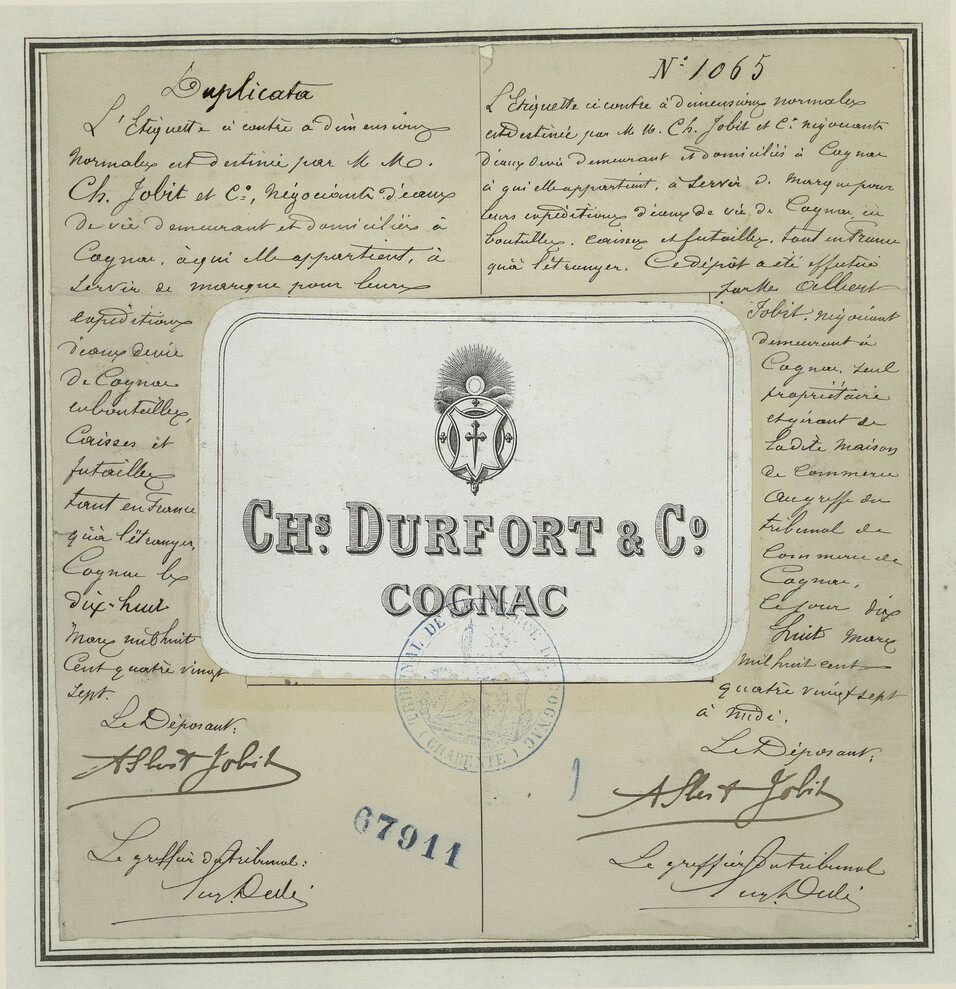 Duplicata
L'Etiquette ci contre à dimensions
normales est destinée par M M.
Ch. Jobit et Cº, négociants d'eaux
de vie demeurant et domiciliés à
Cognac, à qui elle appartient, à
servir de marque pour leurs
expéditions
d'eaux de vie
de Cognac
en bouteilles,
Caisses et
futailles
tant en France
qu'à l'étranger.
Cognac le
dix-huit
Mars mil huit
Cent quatre vingt
sept.
Le Déposant:
Albert Jobit
Le greffier du tribunal:
Nº 1065
L'Etiquette ci contre à dimensions normales
est destinée par M M. Ch. Jobit et Cº négociants
d'eaux de vie demeurant et domiciliés à Cognac
à qui elle appartient, à servir de marque pour
leurs expéditions d'eaux de vie de Cognac en
bouteilles, caisses et futailles, tant en France
qu'à l'étranger. Ce dépôt a été effectué
par Mr Albert
Jobit, négociant
demeurant à
Cognac, seul
propriétaire
et gérant de
ladite maison
de Commerce
au greffe du
tribunal de
Commerce de
Cognac,
le jour dix
huit Mars
mil huit cent
quatre vingt sept
à midi.
Le Déposant:
Albert Jobit
Le greffier du tribunal
CHS. DURFORT & Cº
COGNAC
TRIBUNAL DE COMMERCE DE COGNAC
(CHARENTE)
67911